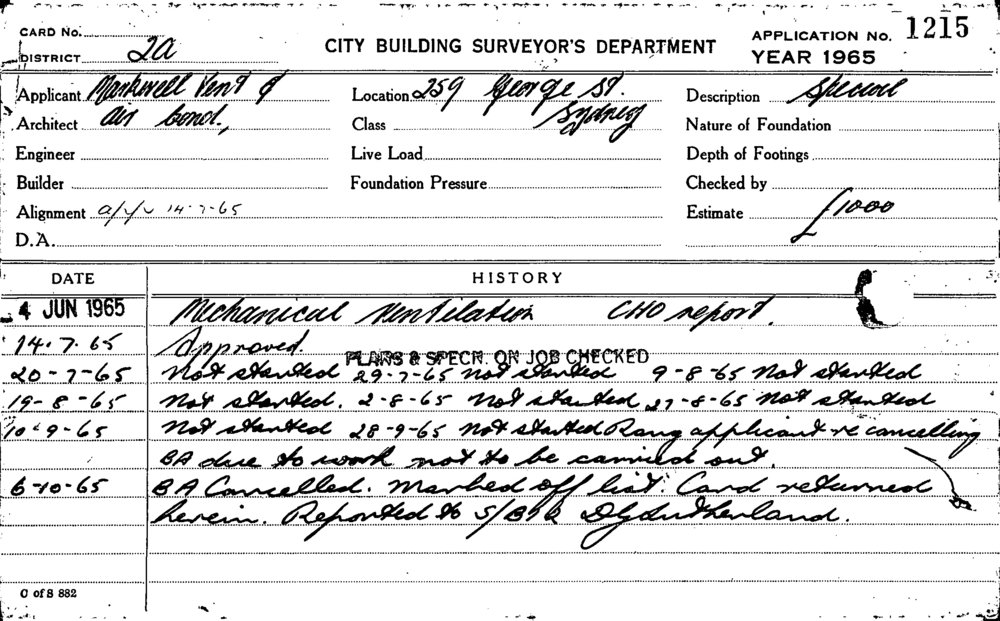 CARD No.
DISTRICT 2a
CITY BUILDING SURVEYOR'S DEPARTMENT
APPLICATION No. 1215
YEAR 1965
Applicant Markwell Vent &
Location 259 George St.
Description Special
Architect air cond.,
Class Sydney
Nature of Foundation
Engineer
Live Load
Depth of Footings
Builder
Foundation Pressure
Checked by
Alignment 14-7-65
Estimate £1000
D.A.
DATE HISTORY
4 JUN 1965 Mechanical Ventilation CHO report.
14.7.65 Approved.
PLANS & SPECN. ON JOB CHECKED
20-7-65 Not started 29-7-65 not started 9-8-65 Not started
19-8-65 Not started. 2-8-65 Not started 27-8-65 Not started
10-9-65 Not started 28-9-65 Not started Rang applicant re cancelling
BA due to work not to be carried out.
6-10-65 BA Cancelled. Marked off list. Card returned
herein. Reported to
C of S 882